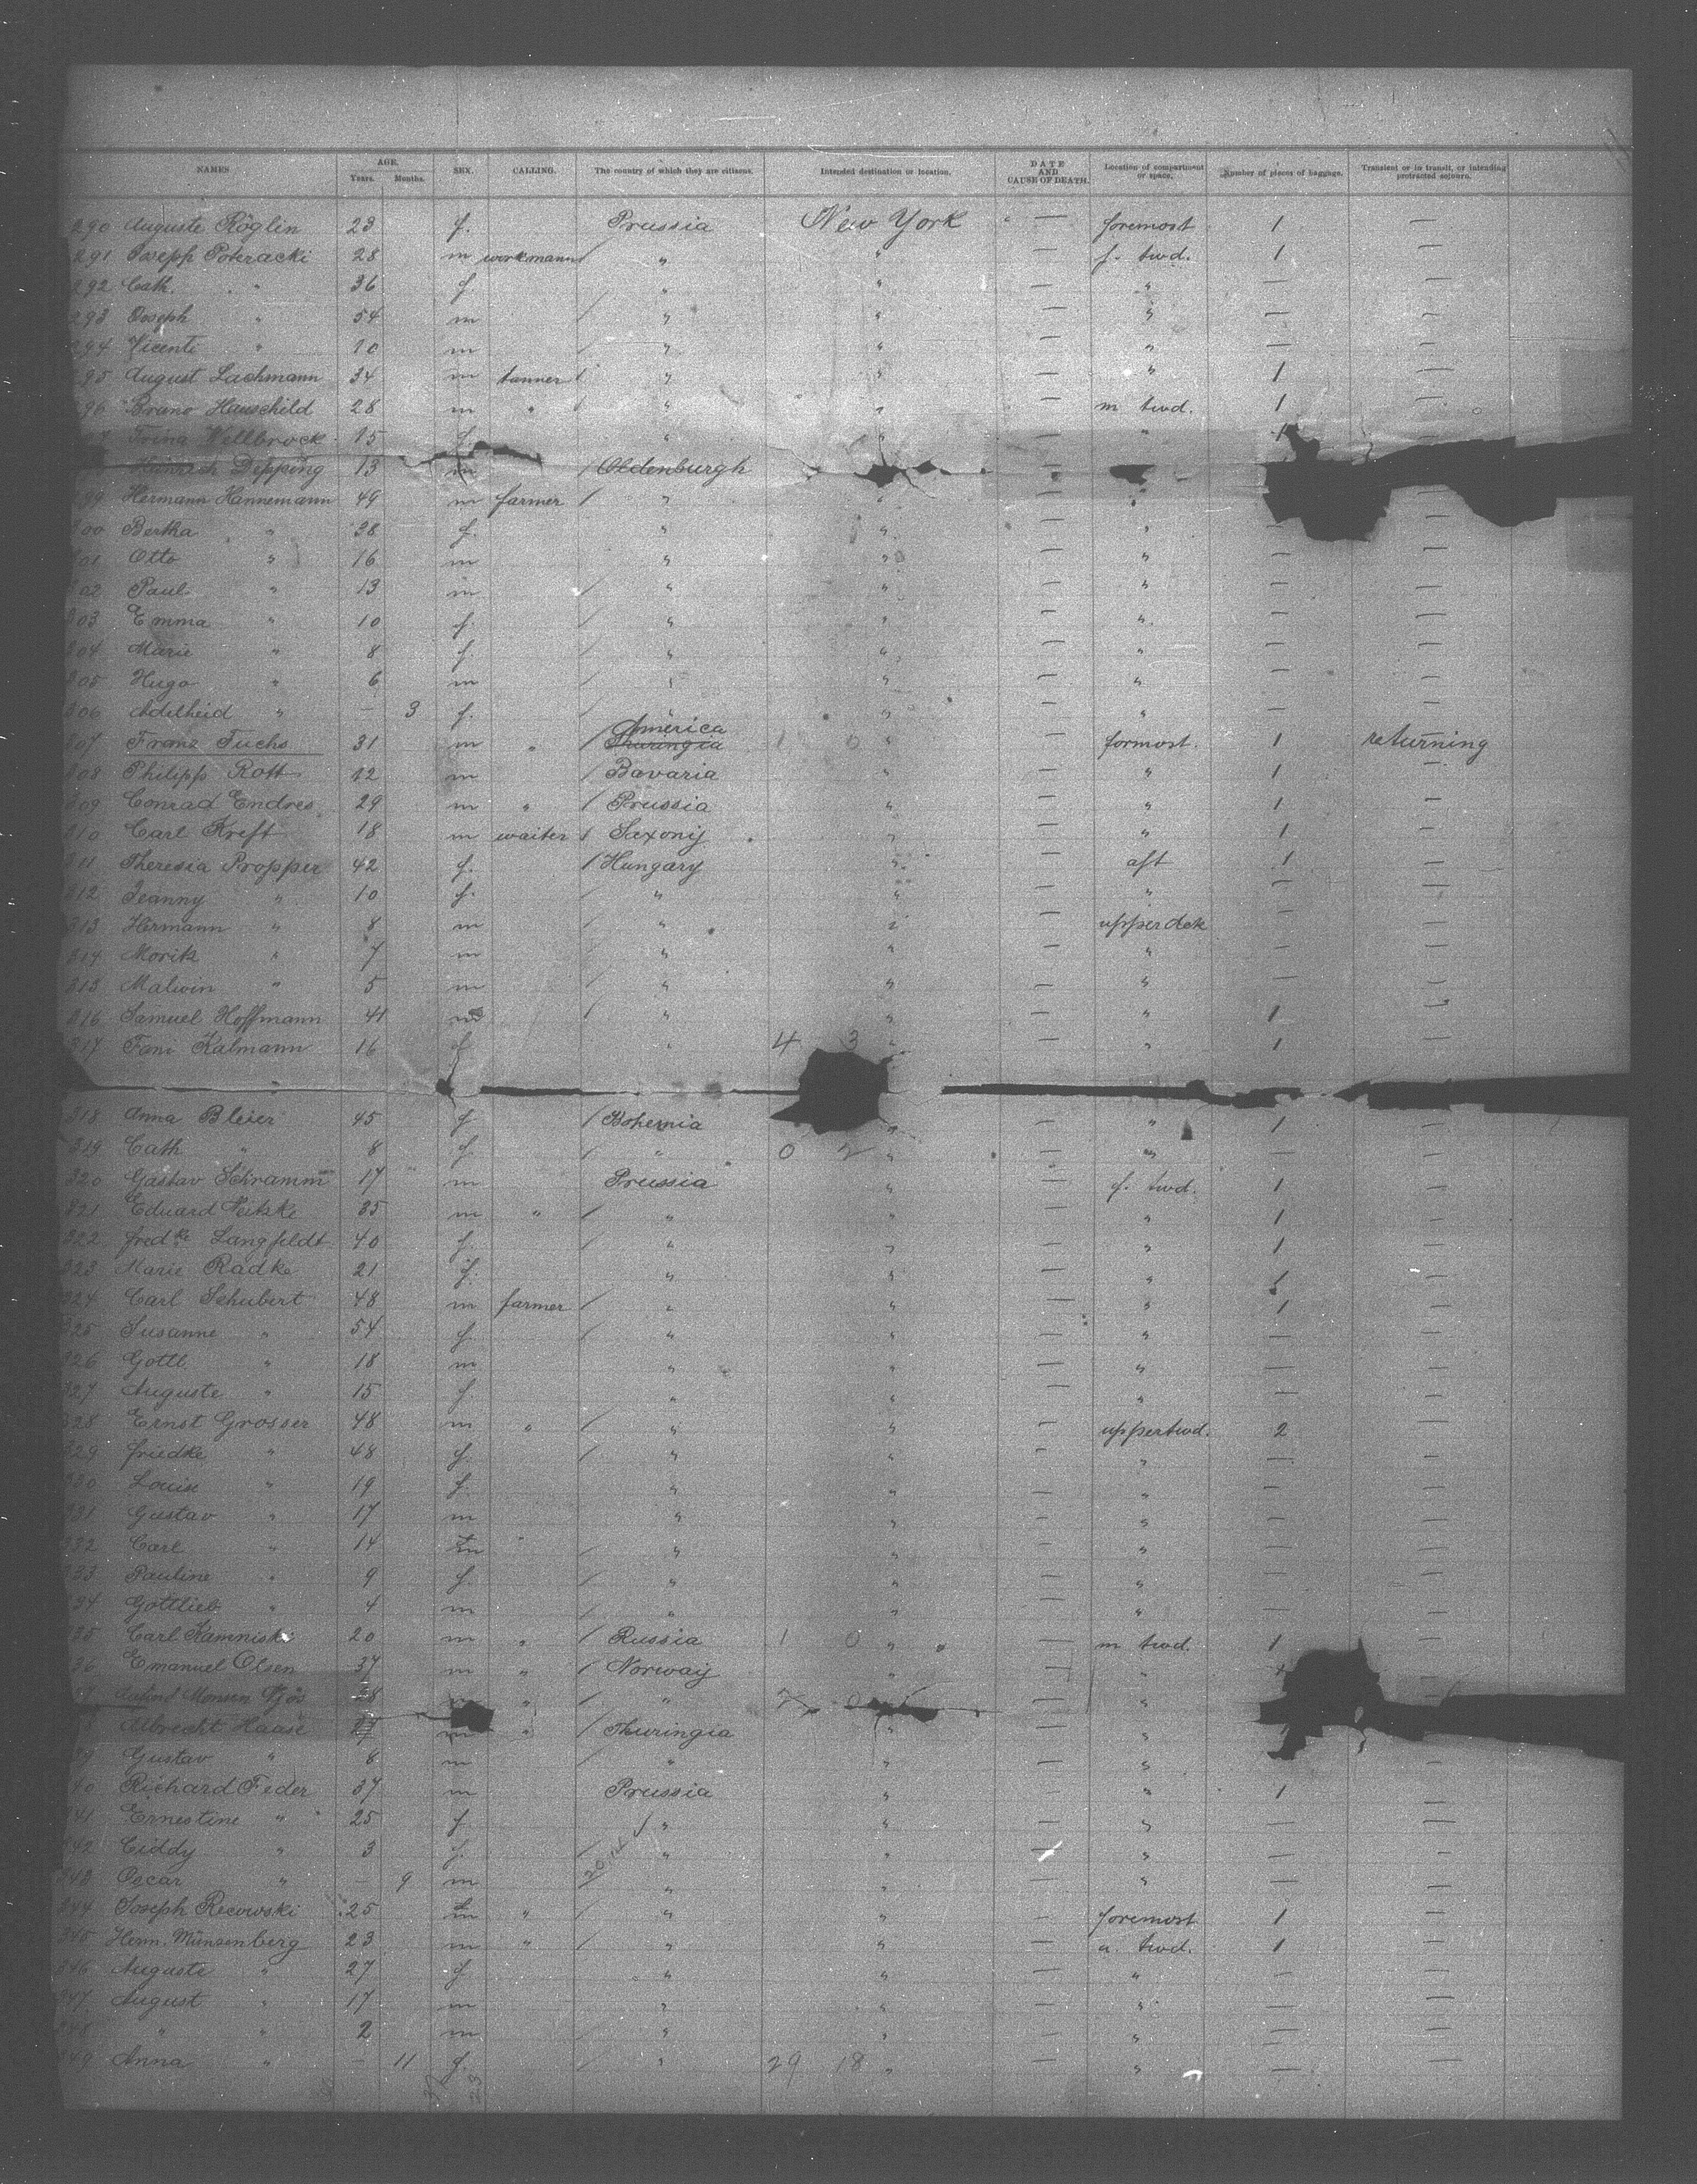 NAMES AGE. Years. Months. SEX. CALLING. The country of which they are citizens. Intended destination or location. DATE AND CAUSE OF DEATH. Location of compartment or space. Number of pieces of baggage. Transient or in transit, or intending protracted sojourn.
290 Auguste Röglin 23 f. Prussia New York — foremost 1 —
291 Joseph Pokracki 28 m workmann / " " — f. twd. 1 —
292 Cath. " 36 f " " — " — —
293 Joseph " 54 m / " " — " — —
294 Vicenti " 10 m / " " — " — —
295 August Lachmann 34 m tanner / " " — " 1 —
296 Bruno Hauschild 28 m " / " " — m twd. 1 —
97 Trina Wellbrock 15 f. " " — " 1 —
Heinrich Depping 13 m / Oldenburgh
299 Hermann Hannemann 49 m farmer / " " — " —
300 Bertha " 38 f. " " — " — —
301 Otto " 16 m " " — " — —
302 Paul " 13 m / " " — " — —
303 Emma " 10 f. / " " — " — —
304 Marie " 8 f. / " " — " — —
305 Hugo " 6 m / " " — " — —
306 Adelheid " — 3 f. / " — " — —
America
307 Franz Fuchs 31 m " / Thuringia 1 0 " formost. 1 returning
308 Philipp Rott 12 m / Bavaria " — " 1 —
309 Conrad Endres 29 m " / Prussia " — " 1 —
310 Carl Kreft 18 m waiter / Saxony " — " 1 —
311 Theresia Propper 42 f. / Hungary " — aft 1 —
312 Jeanny " 10 f. / " " — " — —
313 Hermann " 8 m / " " — upperdek — —
314 Moritz " 7 m / " " — " — —
315 Malwin " 5 m / " " — " — —
316 Samuel Hoffmann 41 m / " " — " 1 —
317 Fani Kalmann 16 f " 4 3 " — " 1 —
318 Anna Bleier 45 f / Bohemia " — " 1 —
319 Cath " 8 f. / " 0 2 " — " — —
320 Gustav Schramm 17 m Prussia " — f. twd. 1 —
321 Eduard Neitzke 35 m " / " " — " 1 —
322 fredke Langfeldt 40 f. / " " — " 1 —
323 Marie Radke 21 f. " " — " 1 —
324 Carl Schubert 48 m farmer / " " — " 1 —
325 Susanne " 54 f / " " — " — —
326 Gottl. " 18 m " " — " — —
327 Auguste " 15 f. " " — " — —
328 Ernst Grosser 48 m " / " " — uppertwd. 2 —
329 friedke " 48 f. / " " — " — —
330 Louise " 19 f. " " — " — —
331 Gustav " 17 m " " — " — —
332 Carl " 14 m / " " — " — —
333 Pauline " 9 f. / " " — " — —
34 Gottlieb " 4 m / " " — " — —
35 Carl Kamniski 20 m " / Russia 1 0 " — m twd. 1 —
36 Emanuel Olsen 37 m " / Norway " — "
Monsen 28 " / " "
Albrecht Haase 27 m " / Thuringia " — "
39 Gustav " 8 m / " " — " —
40 Richard Feder 37 m Prussia " — " 1 —
341 Ernestine " 25 f " " — " — —
342 Ciddy " 3 f. / " " " — —
343 Oscar " — 9 m " " — " — —
344 Joseph Recowski 25 m " / " " — foremost 1 —
345 Herm. Münsenberg 23 m " / " " — a. twd. 1 —
346 Auguste " 27 f " " — " — —
347 August " 17 m " " — " — —
348 " " 2 m / " " — " — —
349 Anna " — 11 f. / " 29 18 " — " — —